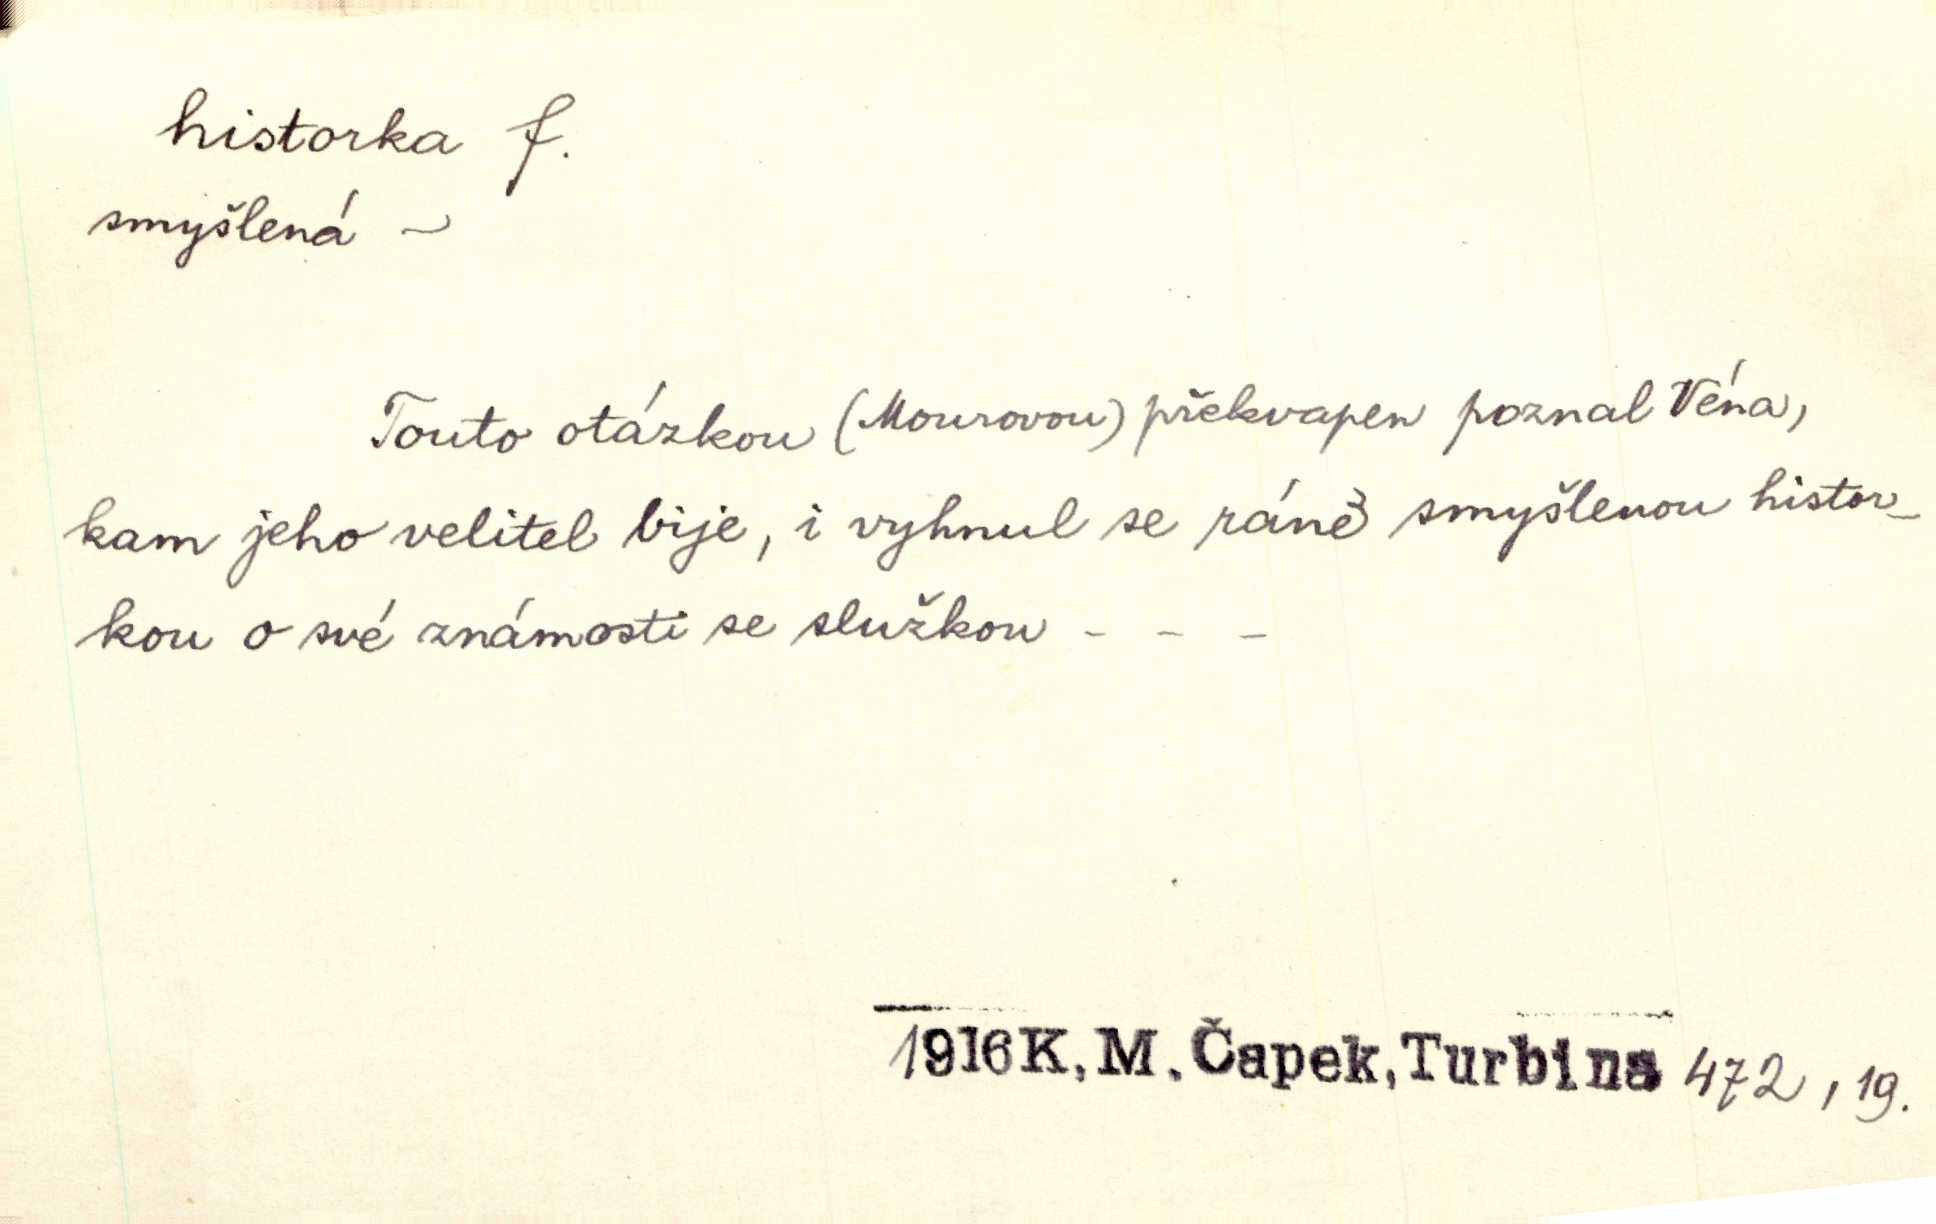 historka f.
smyšlená ~
Touto otázkou (Mourovou) překvapen poznal Véna,
kam jeho velitel bije, i vyhnul se ráně smyšlenou histor-
kou o své známosti se služkou - - -
1916 K. M. Čapek, Turbina 472, 19.